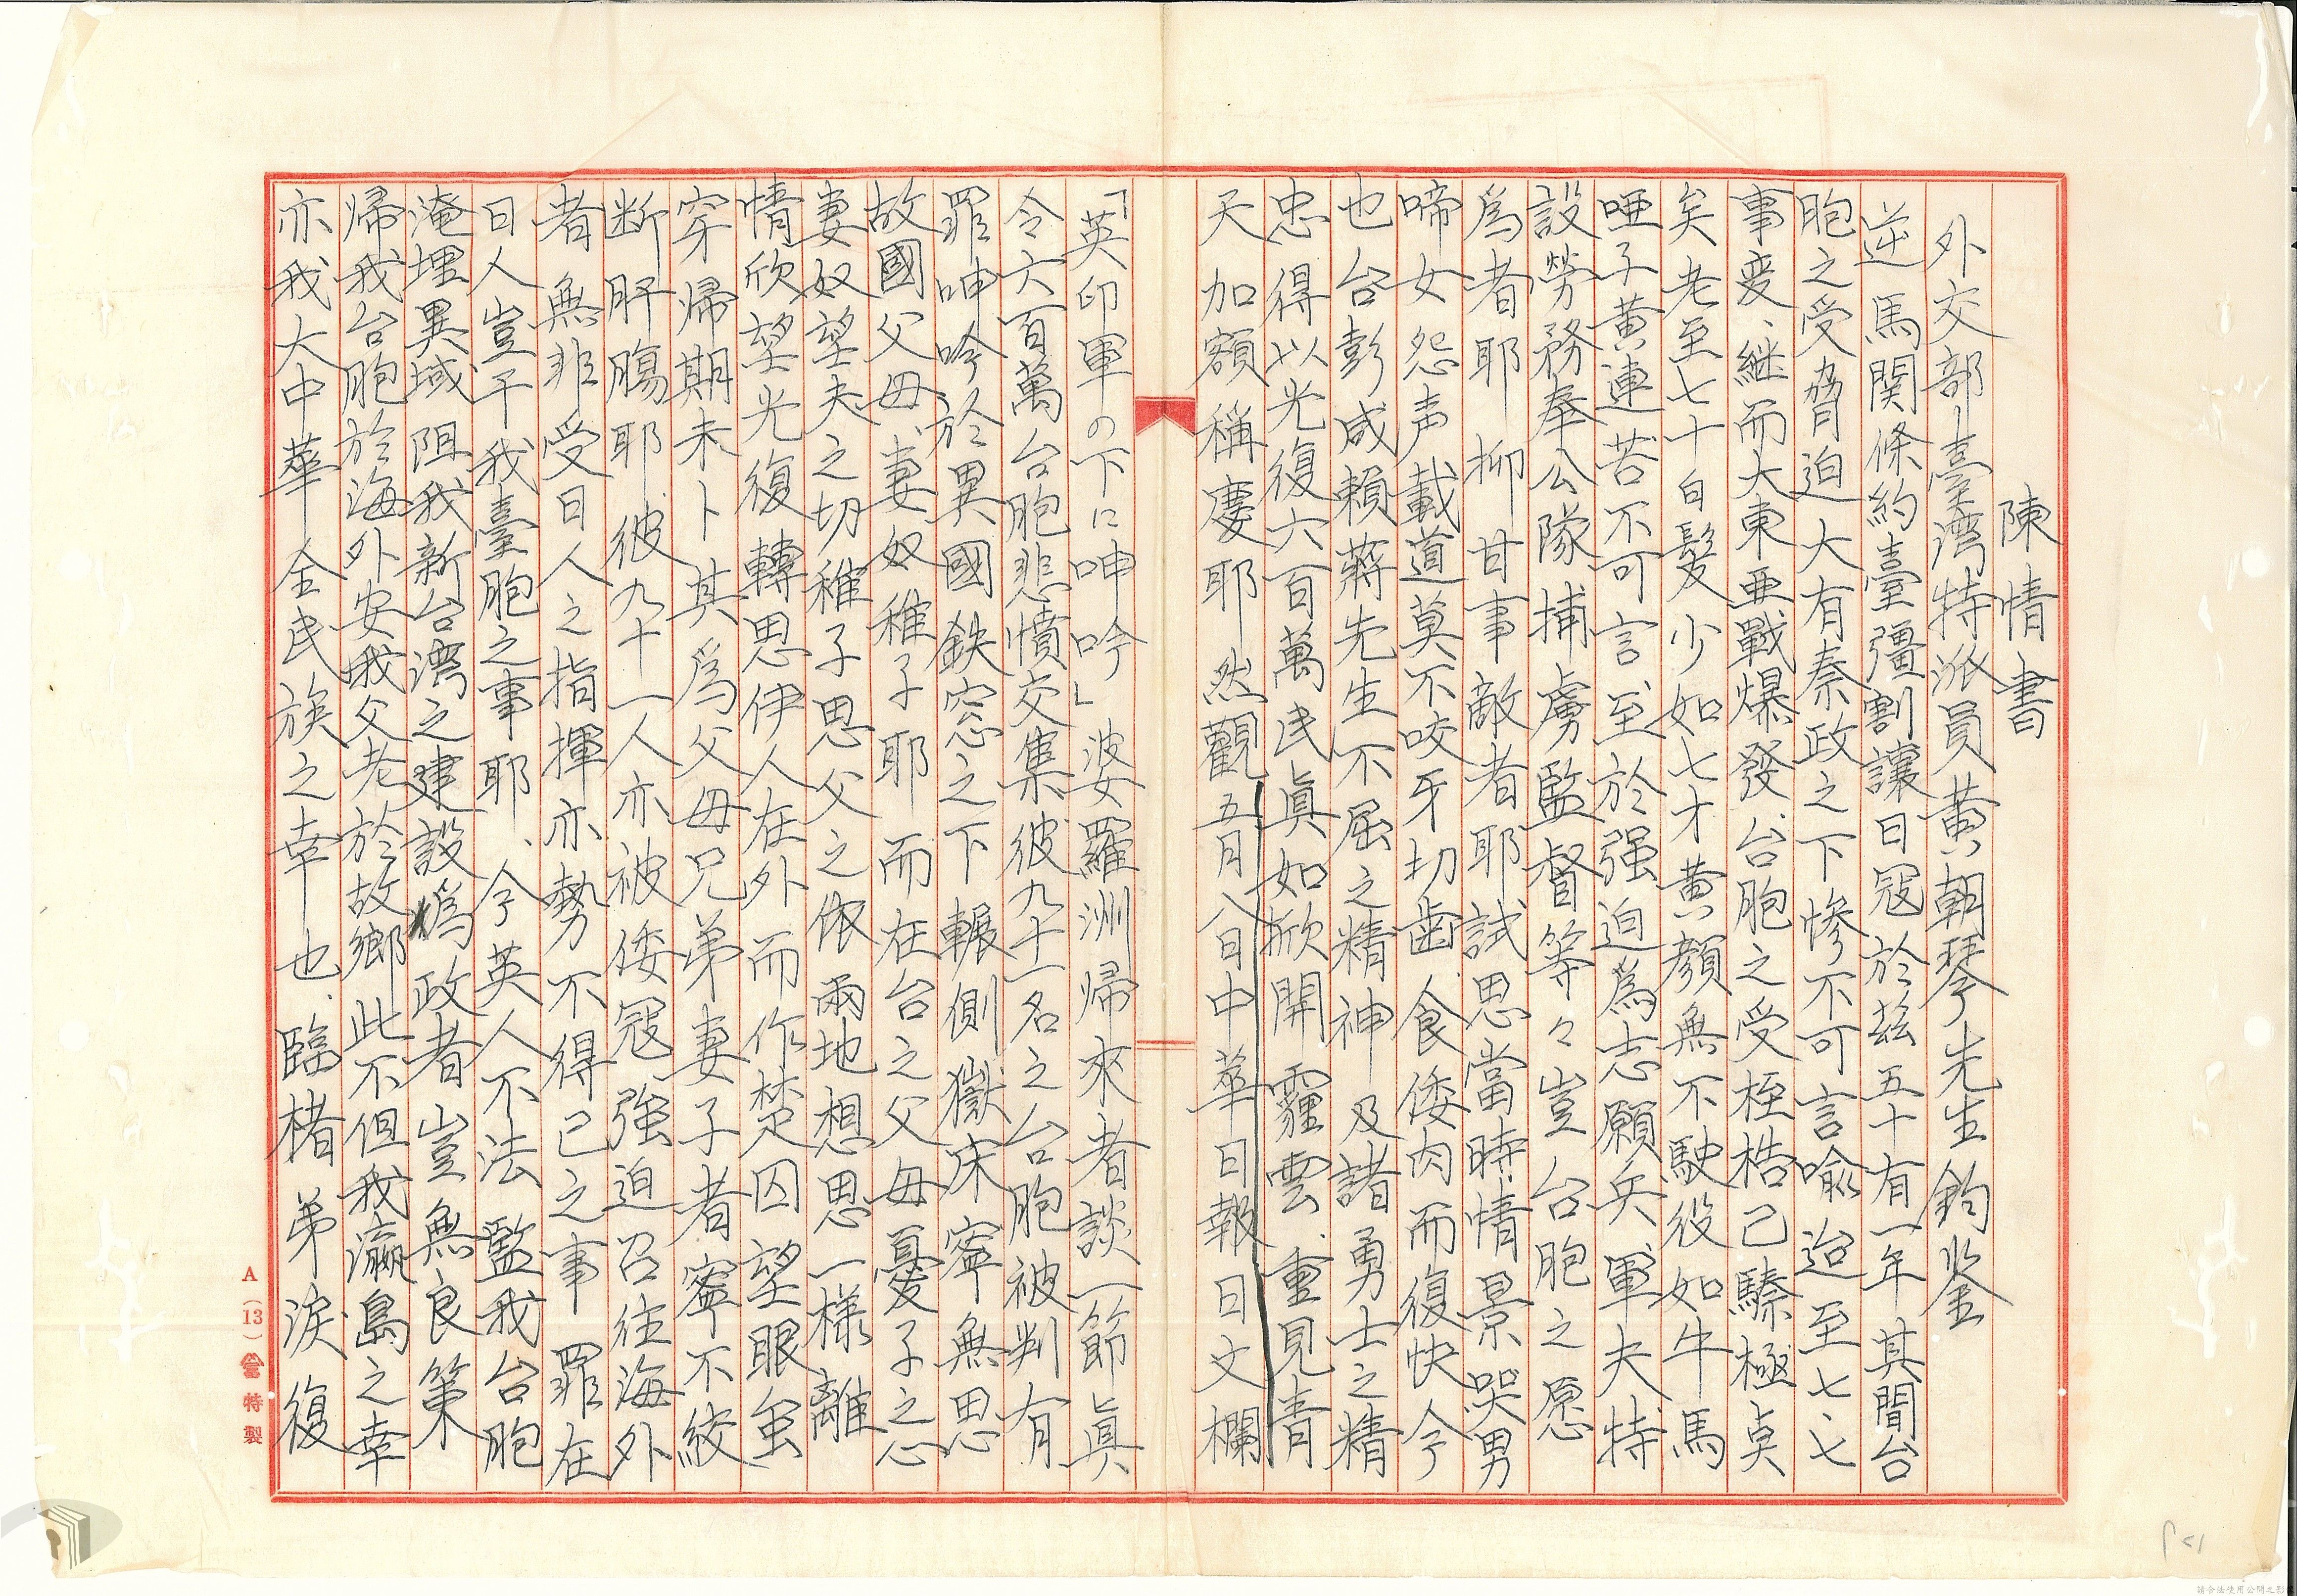 陳情書
外交部臺湾特派員黄朝琴先生鈞鉴
逆馬関條約臺彊割讓日冦於茲五十有一年其間台
胞之受脅迫大有秦政之下惨不可言喩迨至七、七
事変、継而大東亜戰爆發台胞之受桎梏己驂極奌
矣老至七十白髮少如七才黄顏無不駛役如牛馬
唖子黄連苦不可言至於强迫爲志願兵、軍夫特
設勞務奉公隊捕虜監督等々豈台胞之愿
爲者耶抑甘事敵者耶試思當時情景哭男
啼女怨声載道莫不咬牙切歯食倭肉而復快今
也台彭咸賴蔣先生不屈之精神及諸勇士之精
忠得以光復六百萬民眞如掀開霾雲重見青
天加額稱慶耶然觀五月八日中華日報日文欄
「英印軍の下に呻吟」婆羅洲帰來者談一節眞
令六百萬台胞悲憤交集彼九十一名之台胞被判有
罪呻吟於異國鉄窓之下輾側獄床寧無思
故國父母、妻奴稚子耶而在台之父母憂子之心
妻奴望夫之切稚子思父之依兩地想思一樣離
情欣望光復轉思伊人在外而作楚囚望眼虽
穿帰期未卜其爲父母兄弟妻子者寧不絞
断肝膓耶彼九十一人亦被倭冦强迫召往海外
者無非受日人之指揮亦勢不得已之事罪在
日人豈干我臺胞之事耶、今英人不法監我台胞
淹埋異域阻我新台湾之建設爲政者豈無良策
帰我台胞於海外安我父老於故鄉此不但我瀛島之幸
亦我大中華全民族之幸也臨楮弟淚復
A(13)會特製
請合法使用公開之影像